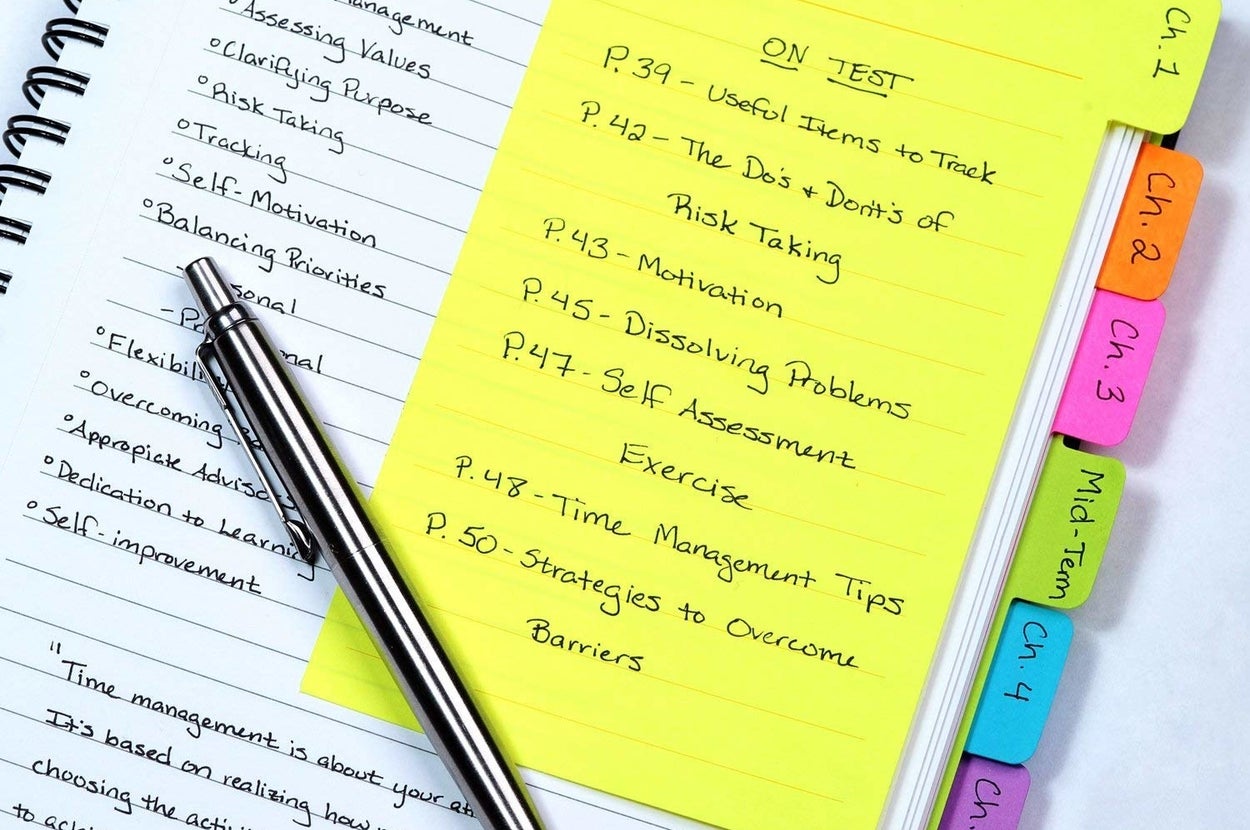 °Assessing Values
°Clarifying Purpose
°Risk Taking
°Tracking
°Self-Motivation
°Balancing Priorities
°Overcoming
°Appropiate
°Dedication to Learning
°Self-improvement
"Time management is about your
It's based on realizing how
choosing the
to
ON TEST
P. 39 - Useful Items to Track
P. 42 - The Do's + Dont's of
Risk Taking
P. 43 - Motivation
P. 45 - Dissolving Problems
P. 47 - Self Assessment
Exercise
P. 48 - Time Management Tips
P. 50 - Strategies to Overcome
Barriers
Ch. 1
Ch. 2
Ch. 3
Mid-Term
Ch. 4
Ch.